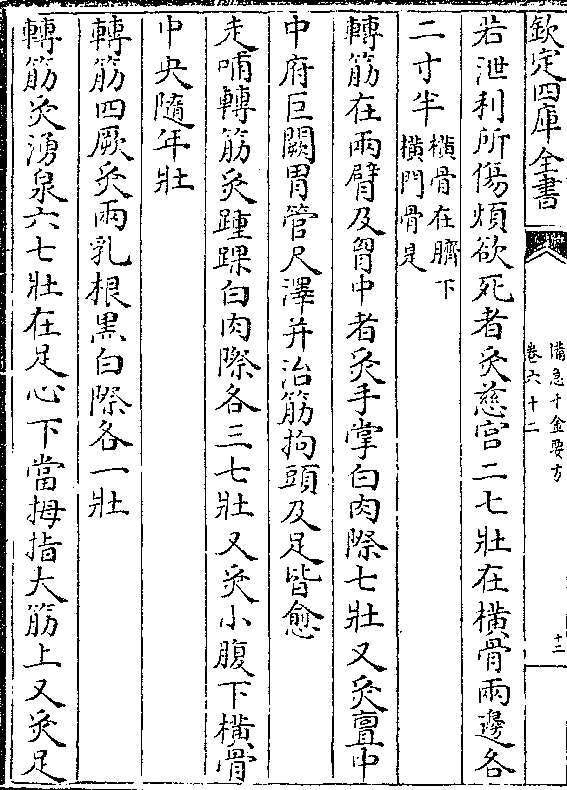 欽定四庫全書
備急千金要方
卷六十二
十三
若泄利所傷煩欲死者灸慈宫二七壯在橫骨兩邊各
二寸半橫骨在臍下橫門骨是
轉筋在兩臂及胷中者灸手掌白肉際七壯又灸亶中
中府巨闕胃管尺澤并治筋拘頭及足皆愈
走哺轉筋灸踵踝白肉際各三七壯又灸小腹下橫骨
中央隨年壯
轉筋四厥灸兩乳根黑白際各一壯
轉筋灸湧泉六七壯在足心下當拇指大筋上又灸足